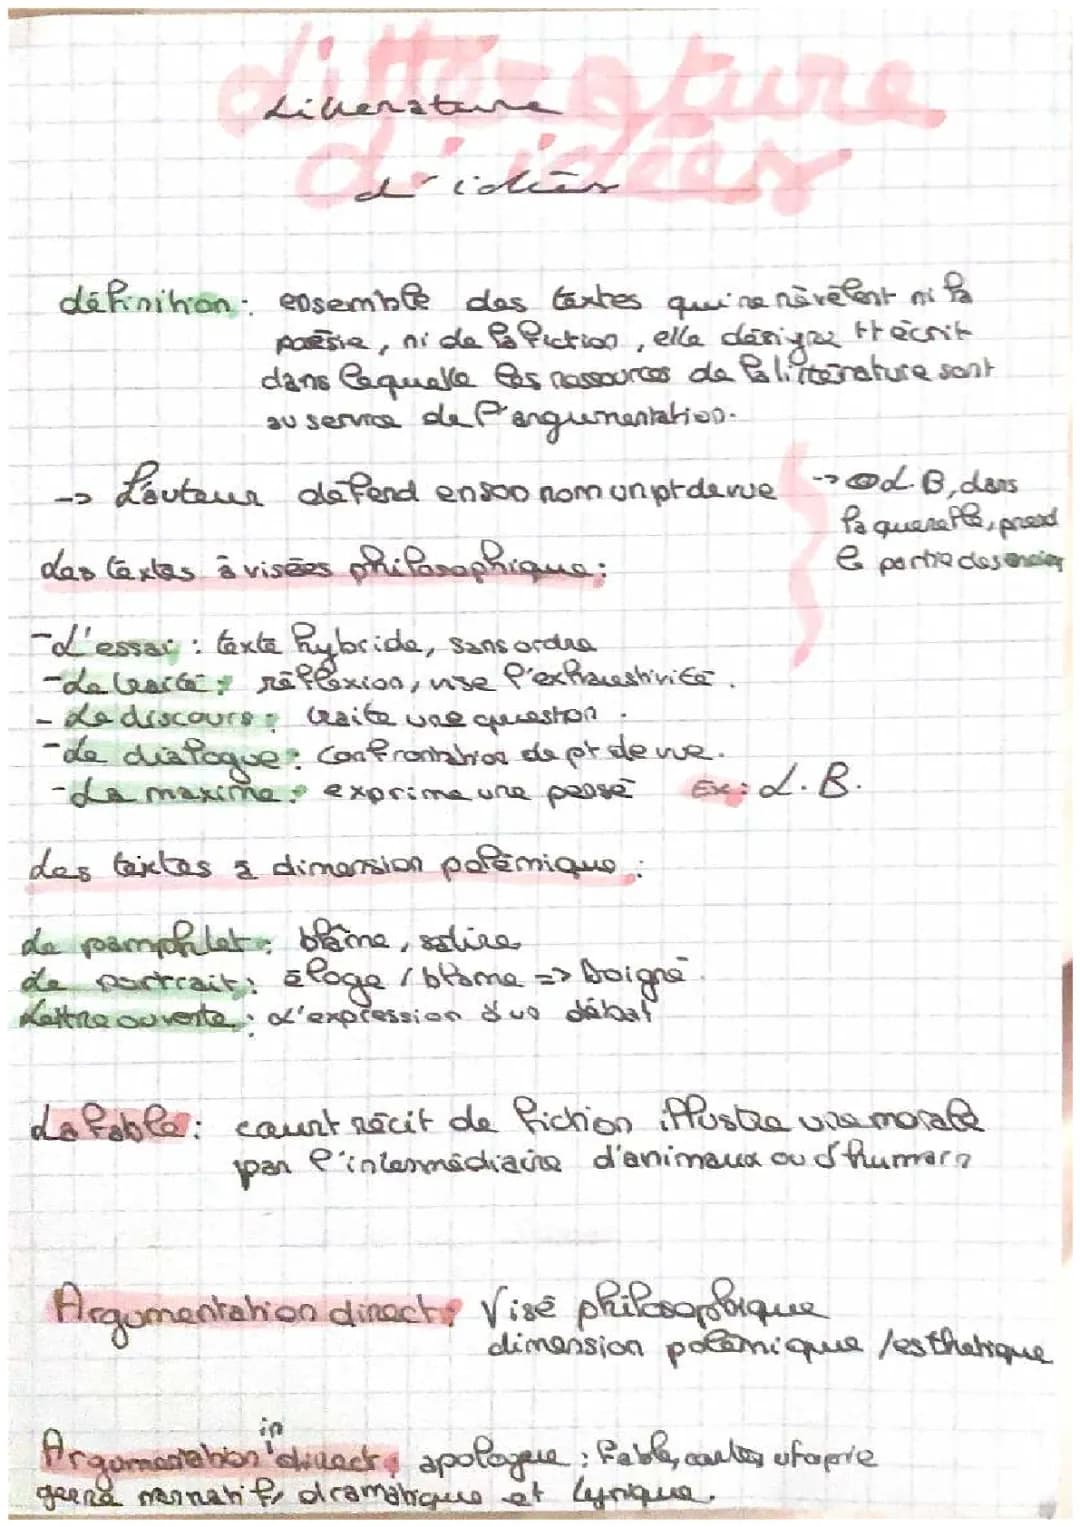 Littérature
d'idées
Litterature
d'idées
définition: ensemble des textes qui ne rèvèlent ni la
poésie, ni de la fiction, elle désigne tt écrit
dans laquelle les ressources de la littérature sont
au service de l'argumentation.
-> L'auteur défend en son nom un pt de vue
-> L.B, dans
la querelle, prend
le partie des anciens
Les textes à visées philosophique:
-L'essai : texte hybride, sans ordre
-Le traité : réflexion, vise l'exhaustivité.
- Le discours : traite une question.
-Le dialogue : Confrontation de pt de vue.
-La maxime : exprime une pensé Ex: L.B.
Les textes à dimension polémique :
Le pamphlet : blâme, satire
Le portrait : éloge / blâme => Doigné.
Lettre ouverte : L'expression d'un débat
La fable : court récit de fiction illustre une morale
par l'intermédiaire d'animaux ou d'humain
Argumentation direct : Visé philosophique
dimension polémique /esthetique
Argumentation indirect : apologue : fable, contes utopie
genre narratif, dramatique et lyrique.